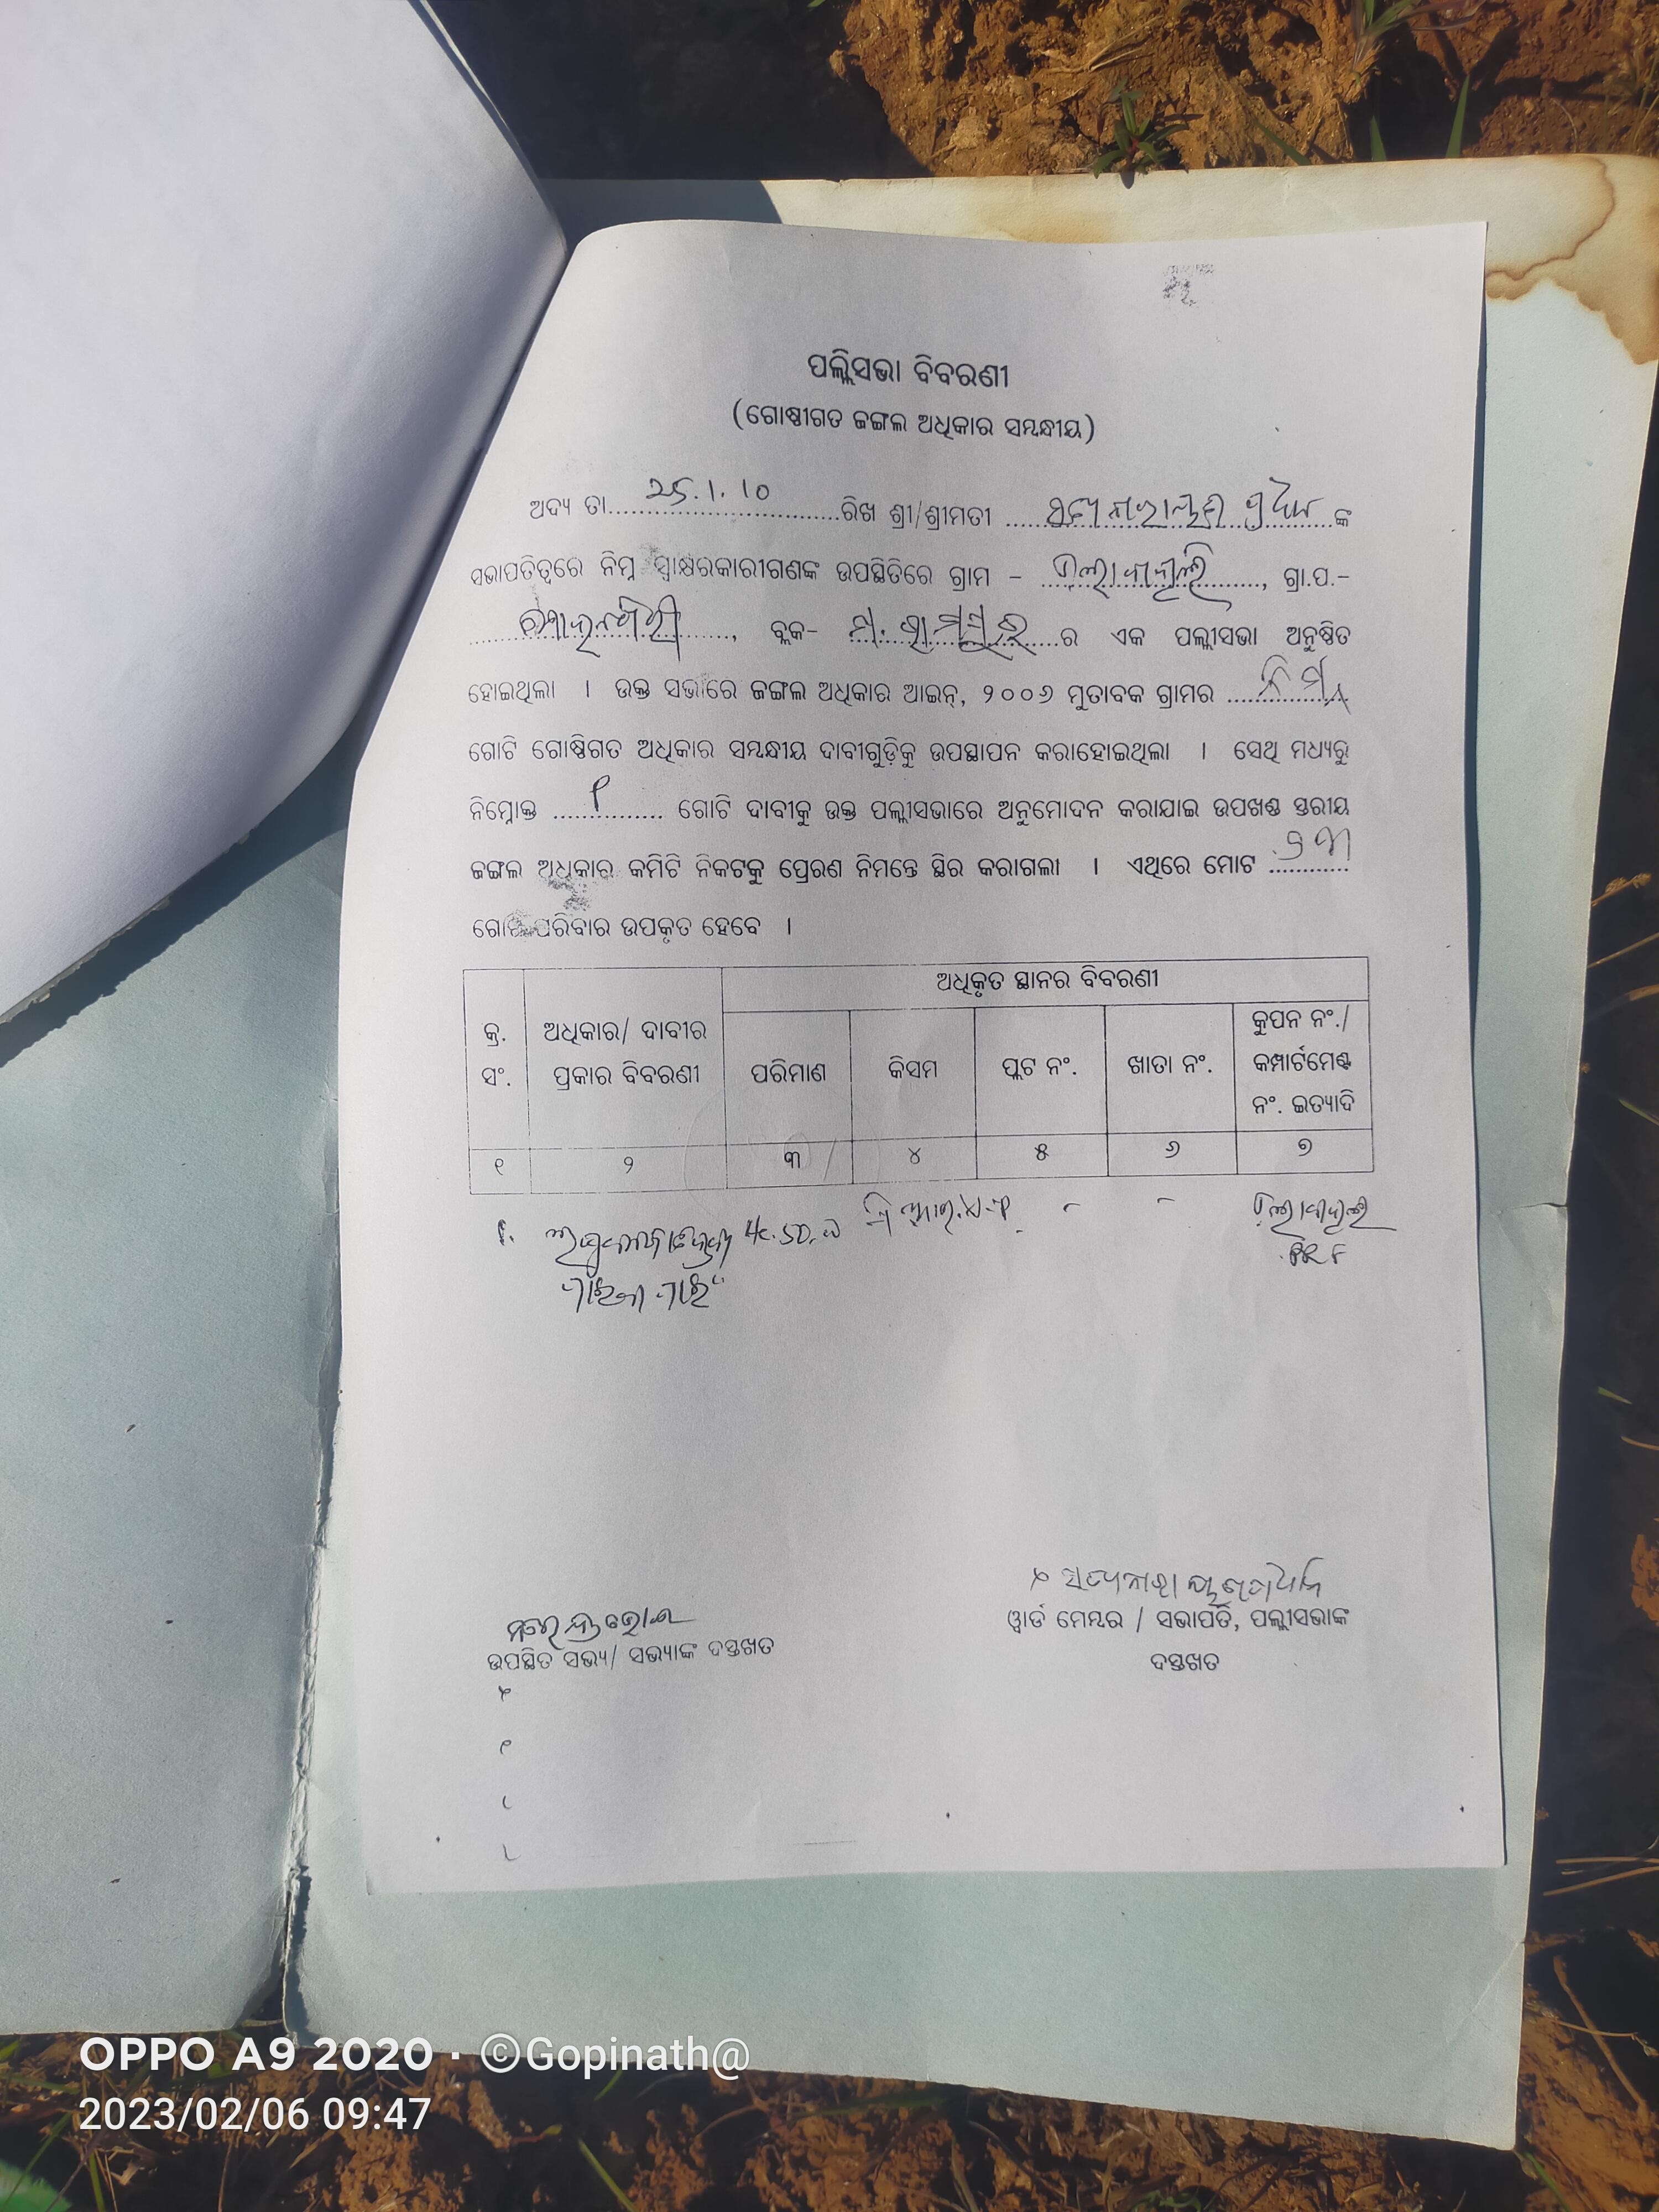 ପଲ୍ଲିସଭା ବିବରଣୀ
(ଗୋଷ୍ଠୀଗତ ଜଙ୍ଗଲ ଅଧିକାର ସମ୍ବନ୍ଧୀୟ)
ଅଦ୍ୟ ତା..... ୨୫.୧.୧୦ .....ରିଖ ଶ୍ରୀ/ଶ୍ରୀମତୀ ..... ପ୍ରଧାନ .....ଙ୍କ
ସଭାପତିତ୍ୱରେ ନିମ୍ନ ସ୍ୱାକ୍ଷରକାରୀଗଣଙ୍କ ଉପସ୍ଥିତିରେ ଗ୍ରାମ – ....., ଗ୍ରା.ପ.–
....., ବ୍ଲକ– ..... ମ. ରାମପୁର .....ର ଏକ ପଲ୍ଲୀସଭା ଅନୁଷ୍ଠିତ
ହୋଇଥିଲା । ଉକ୍ତ ସଭାରେ ଜଙ୍ଗଲ ଅଧିକାର ଆଇନ୍, ୨୦୦୬ ମୁତାବକ ଗ୍ରାମର .....
ଗୋଟି ଗୋଷ୍ଠିଗତ ଅଧିକାର ସମ୍ବନ୍ଧୀୟ ଦାବୀଗୁଡ଼ିକୁ ଉପସ୍ଥାପନ କରାହୋଇଥିଲା । ସେଥି ମଧ୍ୟରୁ
ନିମ୍ନୋକ୍ତ ..... ୧ ..... ଗୋଟି ଦାବୀକୁ ଉକ୍ତ ପଲ୍ଲୀସଭାରେ ଅନୁମୋଦନ କରାଯାଇ ଉପଖଣ୍ଡ ସ୍ତରୀୟ
ଜଙ୍ଗଲ ଅଧିକାର କମିଟି ନିକଟକୁ ପ୍ରେରଣ ନିମନ୍ତେ ସ୍ଥିର କରାଗଲା । ଏଥିରେ ମୋଟ .....
ଗୋଟି ପରିବାର ଉପକୃତ ହେବେ ।
ଅଧିକୃତ ସ୍ଥାନର ବିବରଣୀ
କ୍ର. ସଂ.
ଅଧିକାର/ ଦାବୀର
ପ୍ରକାର ବିବରଣୀ
ପରିମାଣ
କିସମ
ପ୍ଲଟ ନଂ.
ଖାତା ନଂ.
କୁପନ ନଂ./
କମ୍ପାର୍ଟମେଣ୍ଟ
ନଂ. ଇତ୍ୟାଦି
୧ ୨ ୩ ୪ ୫ ୬ ୭
୧. - -
ସତ୍ୟନାରାୟଣ ପ୍ରଧାନ
ୱାର୍ଡ ମେମ୍ବର / ସଭାପତି, ପଲ୍ଲୀସଭାଙ୍କ
ଦସ୍ତଖତ
ଉପସ୍ଥିତ ସଭ୍ୟ/ ସଭ୍ୟାଙ୍କ ଦସ୍ତଖତ
OPPO A9 2020 · ©Gopinath@
2023/02/06 09:47